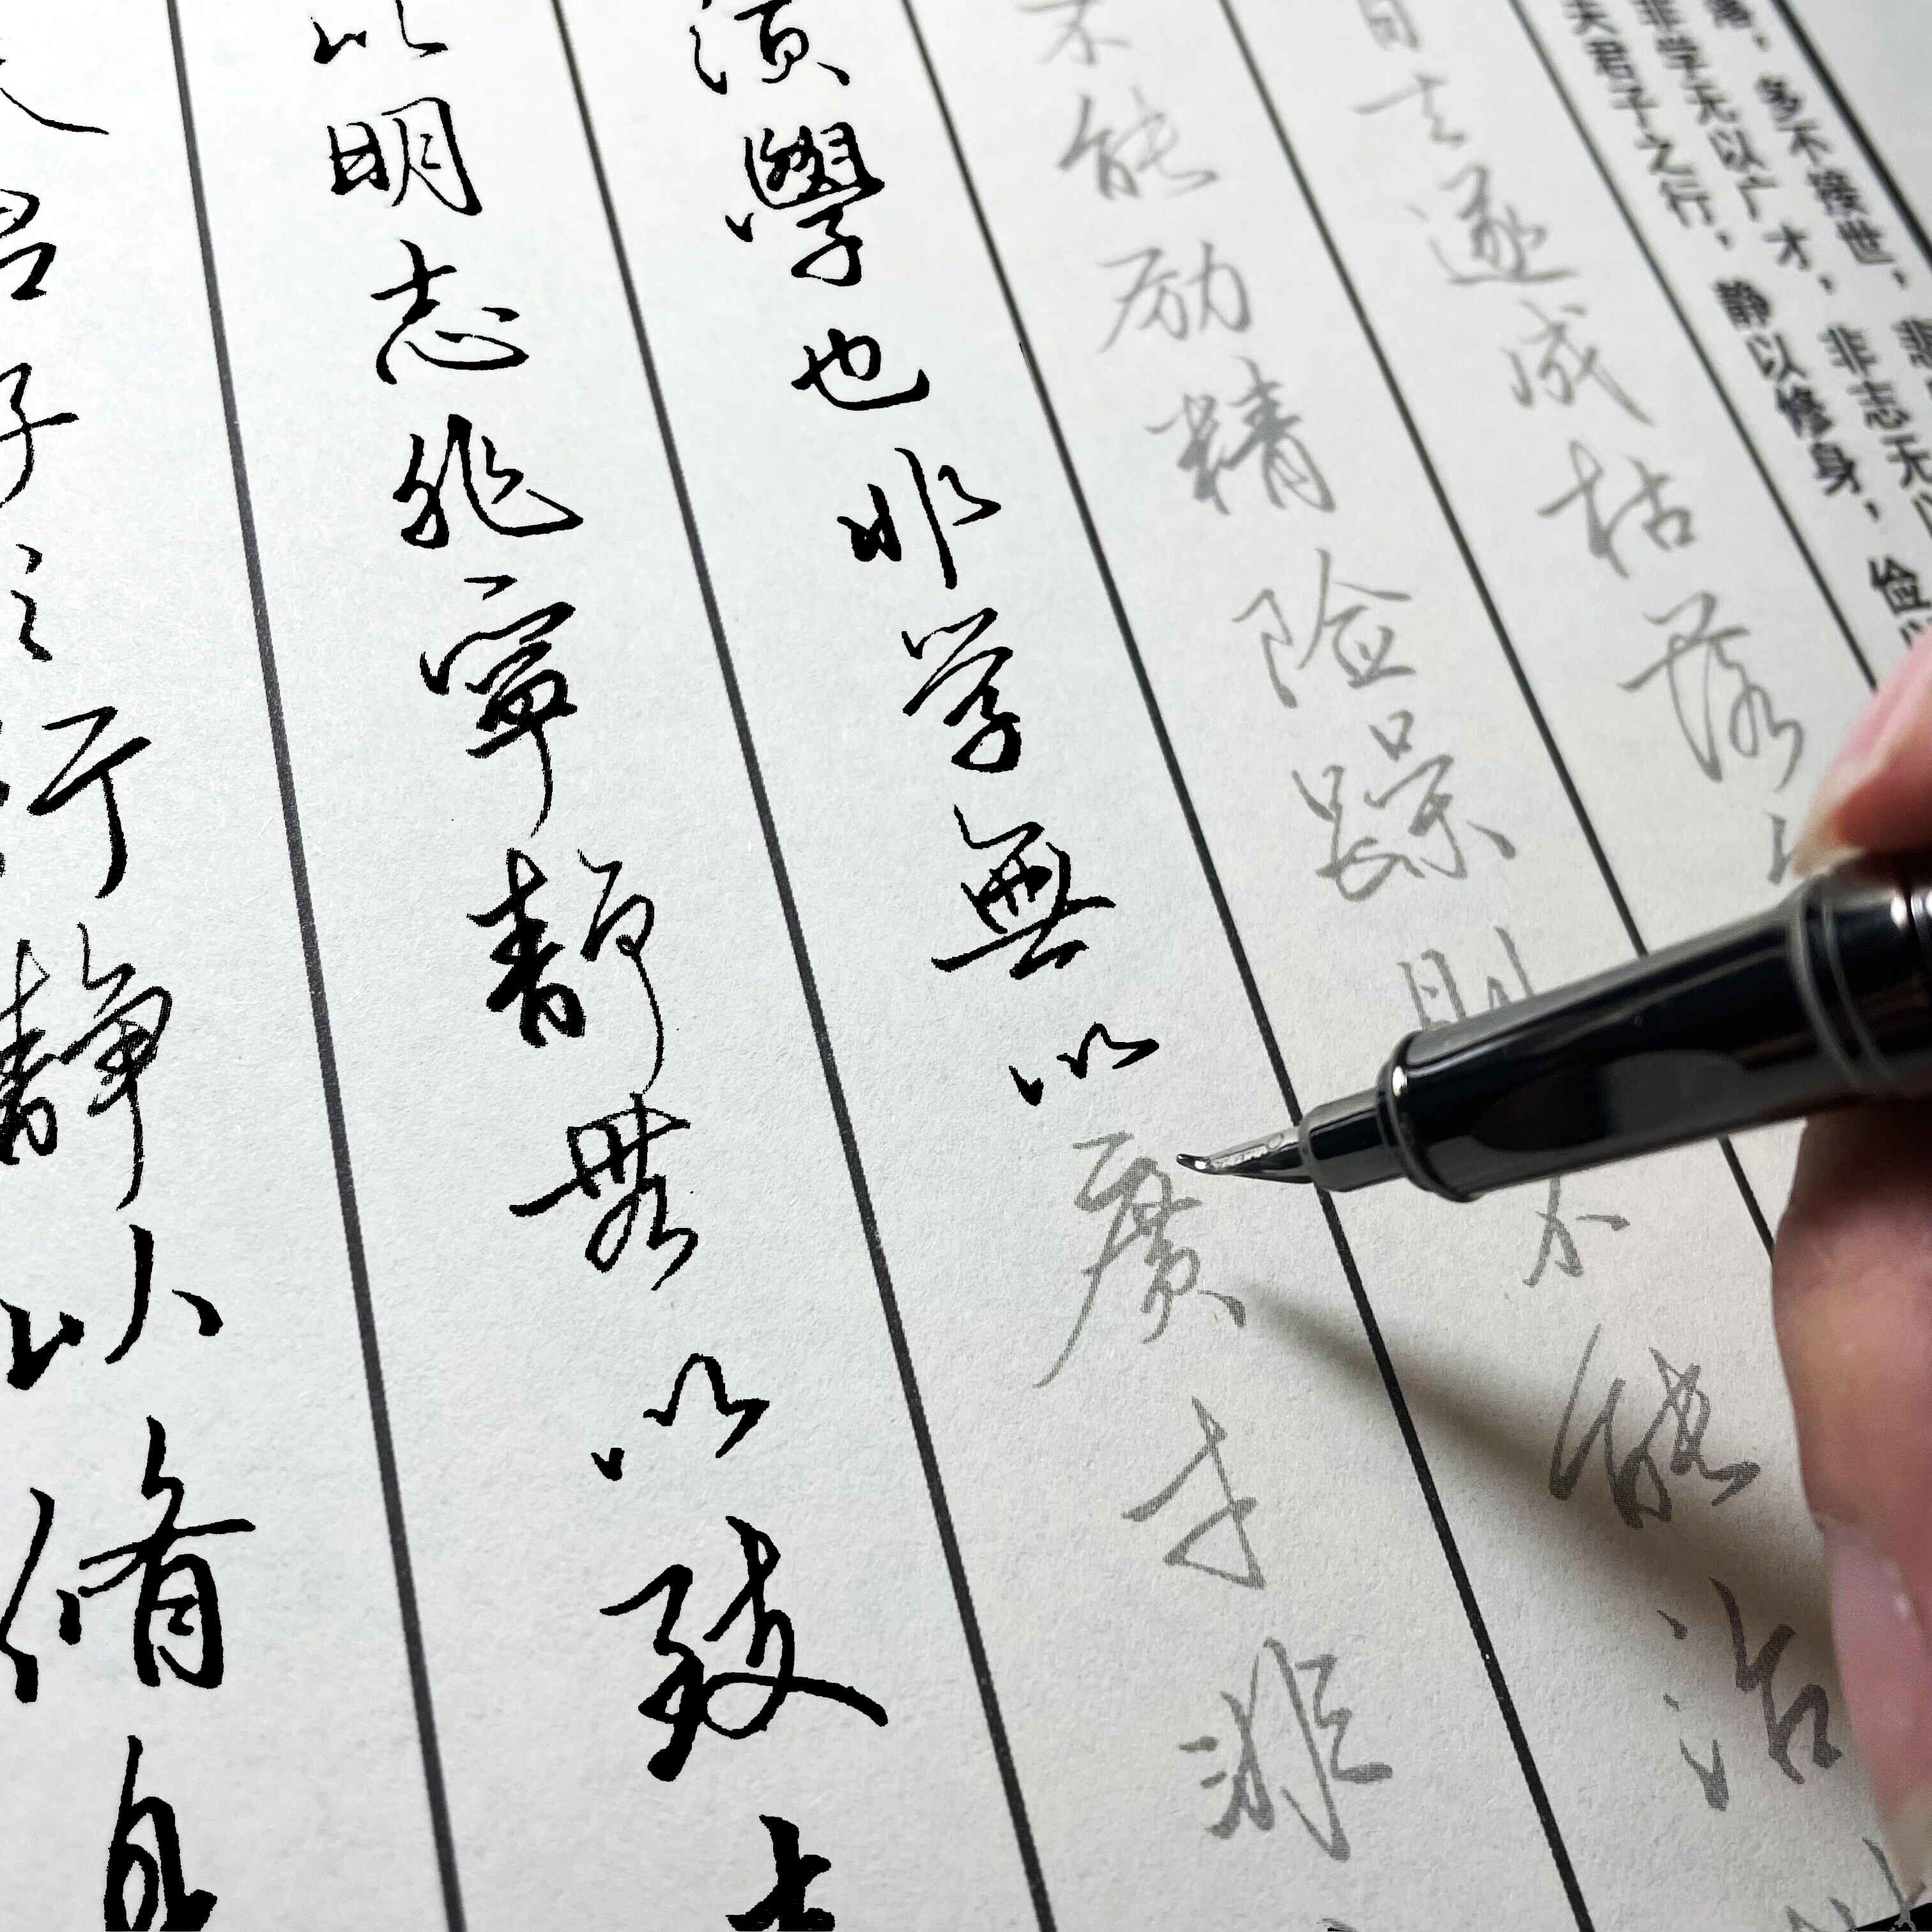 君子之行靜以脩身
以明志非寧靜無以致
須學也非学無以廣才非
不能励精险躁则不能治
日去遂成枯落
夫君子之行，静以修身，俭以
非学无以广才，非志无以
落，多不接世，悲